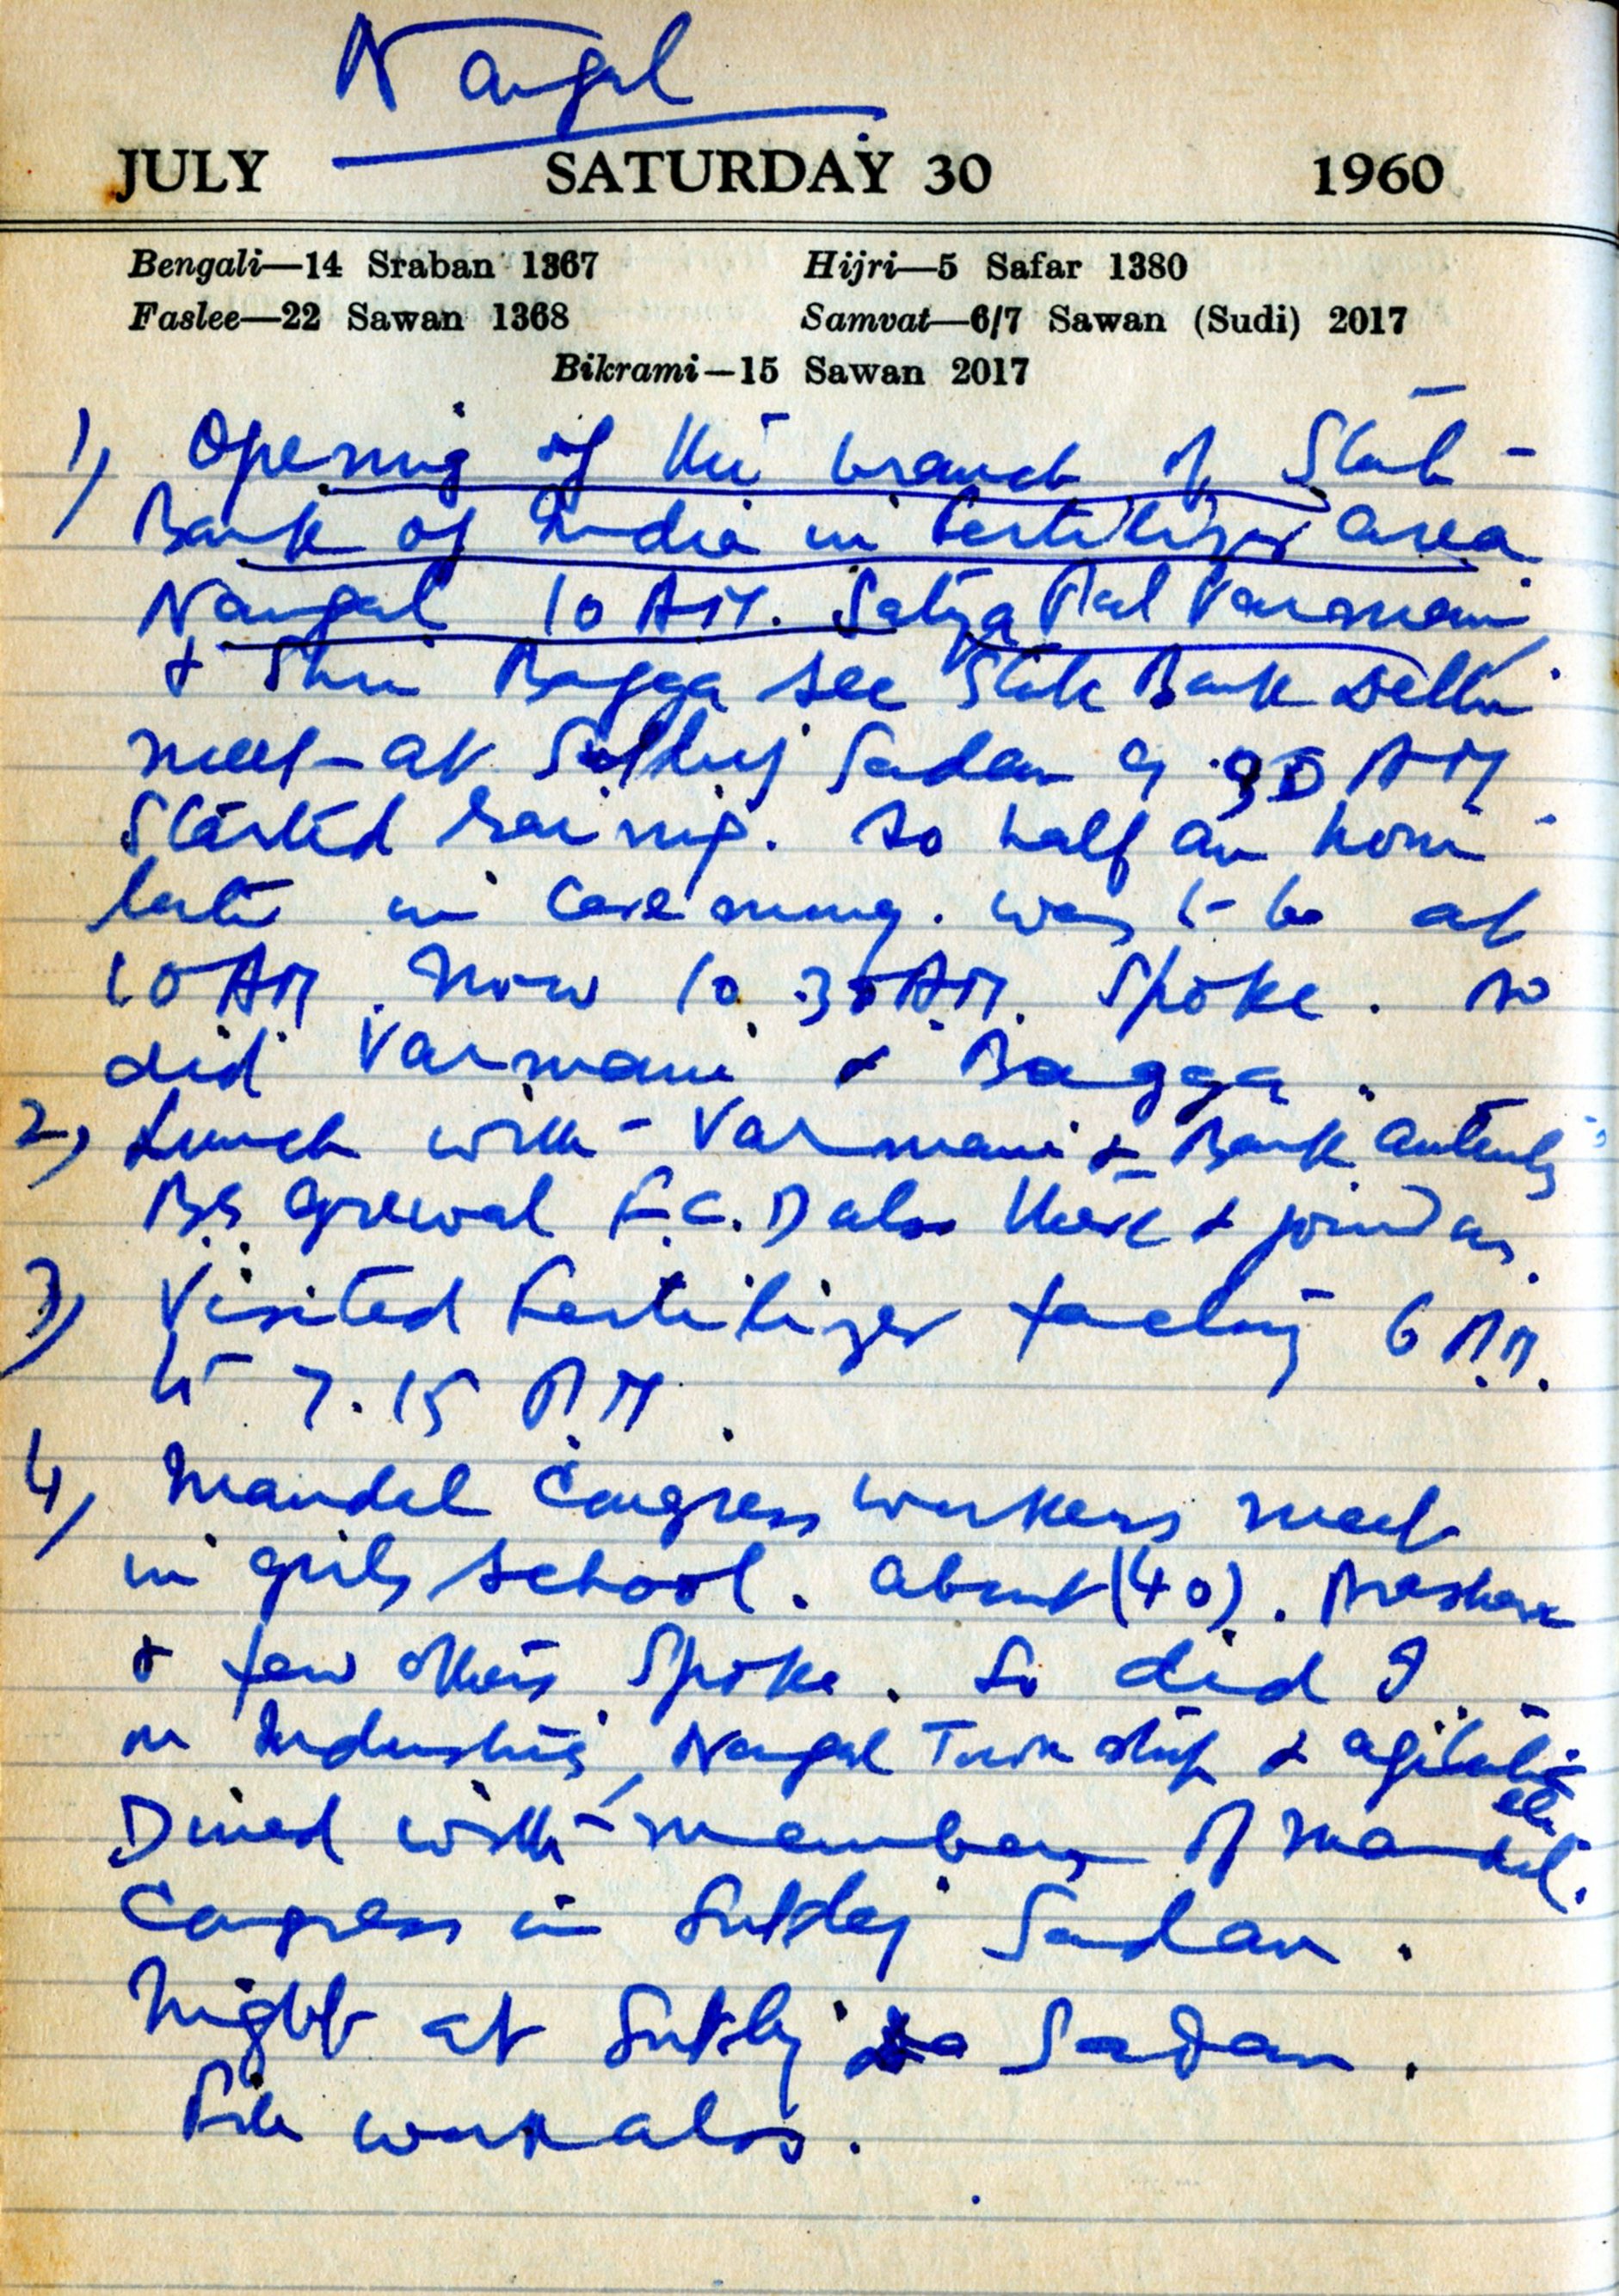 Nangal
JULY SATURDAY 30 1960
Bengali—14 Sraban 1367 Hijri—5 Safar 1380
Faslee—22 Sawan 1368 Samvat—6/7 Sawan (Sudi) 2017
Bikrami—15 Sawan 2017
1) Opening of the branch of State
Bank of India in Fertilizer area
Nangal 10 AM. Satya Pal Varmani
& Shri Bagga see State Bank Delhi
meet at Sutlej Sadan 9.30 AM
Started raining. So half an hour
late in ceremony. was to be at
10 AM. Now 10.30 AM. Spoke. so
did Varmani & Bagga.
2) Lunch with Varmani & Bank
BS Grewal F.C.D also there & joined us.
3) Visited Fertilizer factory 6 PM.
to 7.15 PM.
4) Mandal Congress workers meet
in girls school. about (40).
& few others spoke. So did I.
on Industries, Nangal Township & agitation
etc
Dined with members of Mandal.
Congress in Sutlej Sadan.
Night at Sutlej Sadan.
File work also.